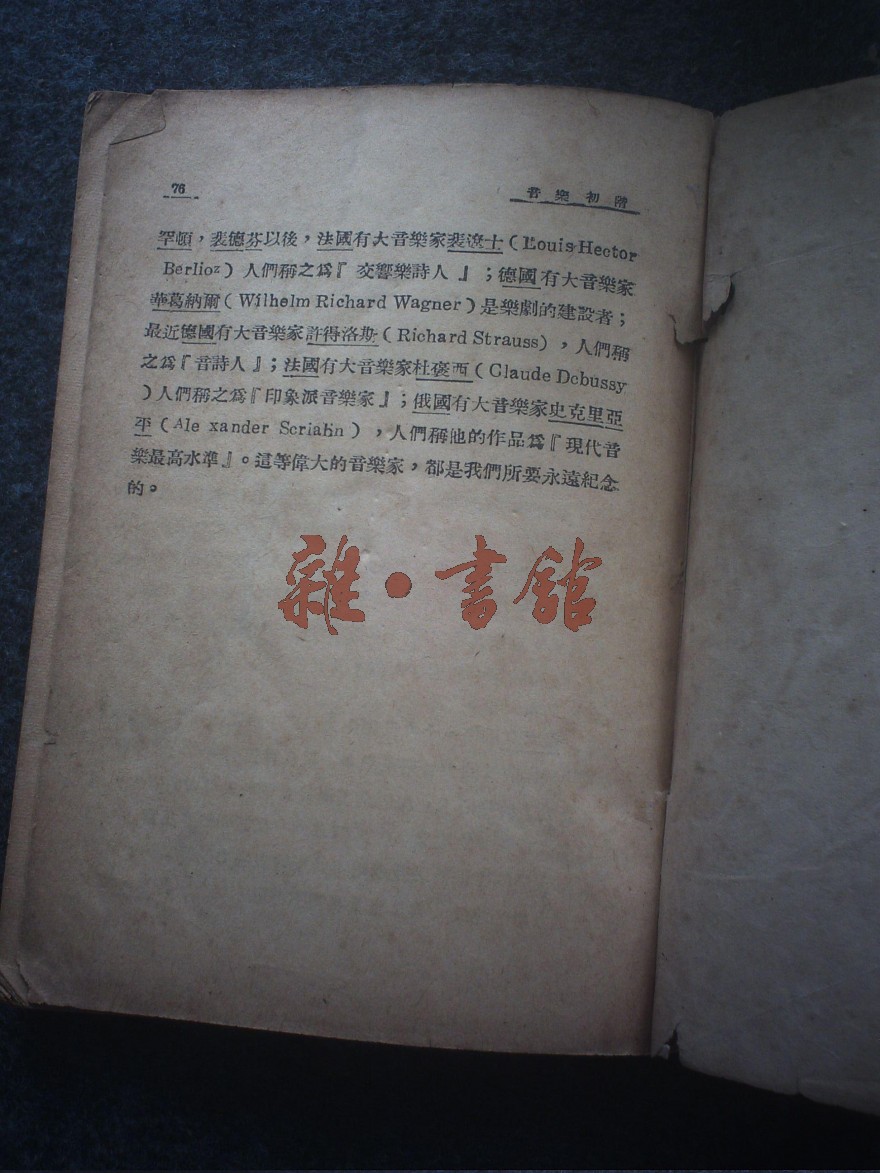 76
音樂初階
罕頓，裴德芬以後，法國有大音樂家裴遼士（Louis Hector
Berlioz）人們稱之爲『交響樂詩人』；德國有大音樂家
華葛納爾（Wilhelm Richard Wagner）是樂劇的建設者；
最近德國有大音樂家許得洛斯（Richard Strauss），人們稱
之爲『音詩人』；法國有大音樂家杜褒西（Claude Debussy
）人們稱之爲『印象派音樂家』；俄國有大音樂家史克里亞
平（Ale xander Scriabin），人們稱他的作品爲『現代音
樂最高水準』。這等偉大的音樂家，都是我們所要永遠紀念
的。
雜·書館